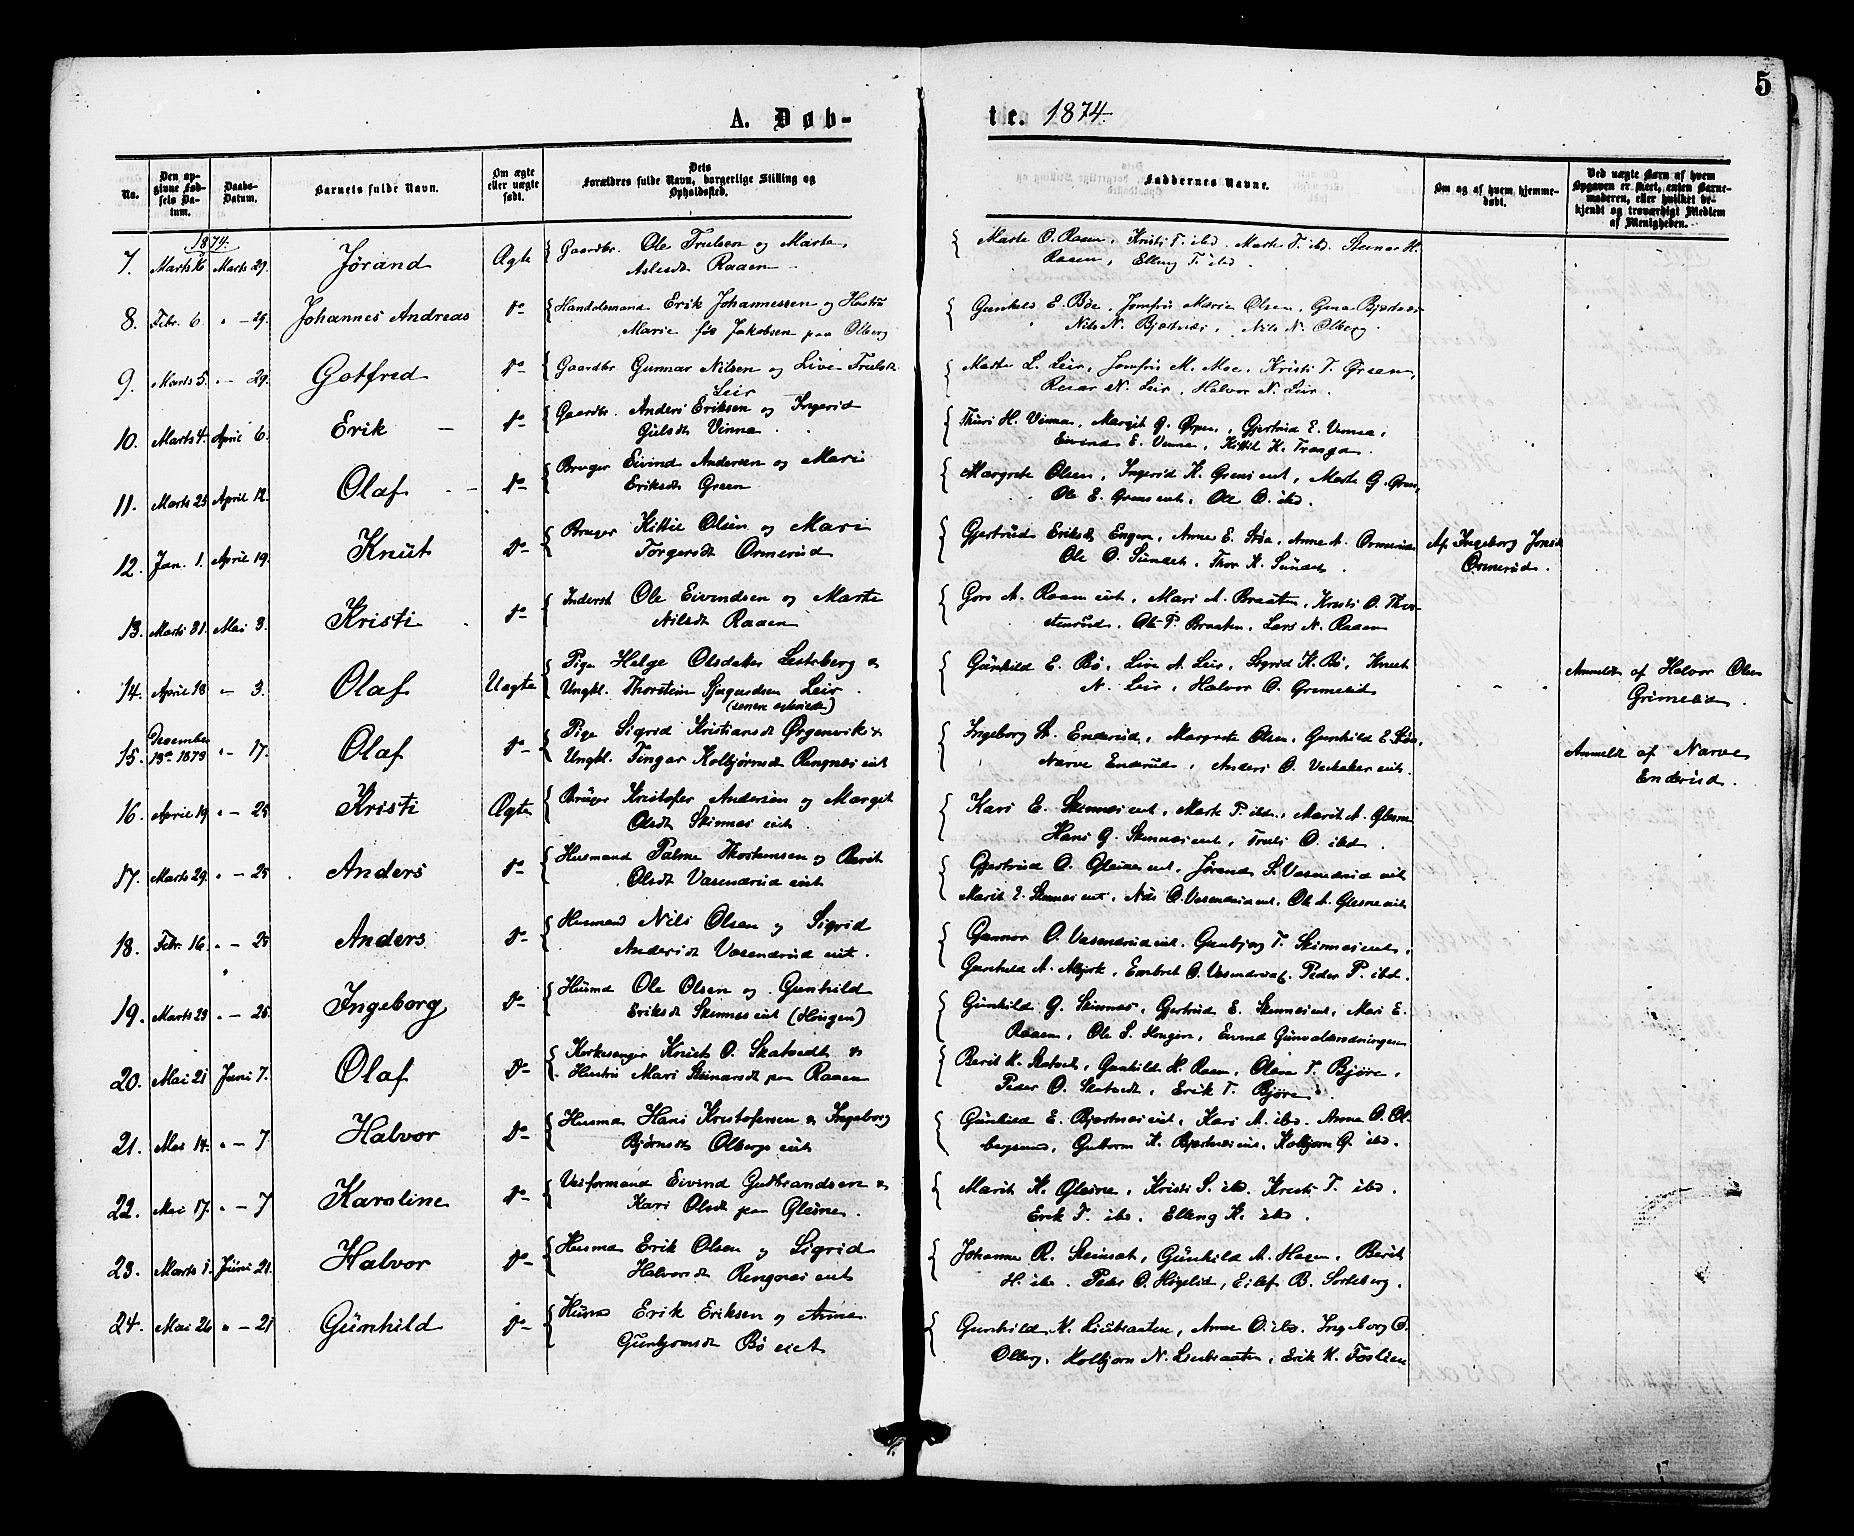 5
A. Døb-
te. 1874.
No.
Den op-
givne Fød-
sels Da-
tum.
Daabs-
Datum.
Barnets fulde Navn.
Om ægte
eller uægte
født.
Dets
Forældres fulde Navn, borgerlige Stilling og
Opholdssted.
Faddernes Navne.
Om og af hvem hjemme-
døbt.
Ved uægte Børn af hvem
Opgaven er skeet, enten Barne-
moderen, eller hvilket be-
kjendt og troværdigt Medlem
af Menigheden.
1874.
7. Marts 16 Marts 29. Jørand Ægte Gaardbr. Ole Trulsen og Marte
Aslesdt Raaen.
Marte O. Raaen, Kristi T. ibd. Marte T. ibd. Steinar H.
Raaen, Elling T. ibd.
8. Febr. 6. " - 29. Johannes Andreas do Handelsmand Erik Johannessen og Hustru
Marie føe Jakobsen paa Olberg
Gunhild E. Bøe, Jomfru Marie Olsen, Gina Bjertnæs
Nils N. Bjertnæs, Nils N. Olberg.
9. Marts 5. " - 29. Gotfred do Gaardbr Gunnar Nilsen og Live Trulsdt
Leir
Marte L. Leir, Jomfru M. Moe, Kristi T. Green,
Reiar N. Leir, Halvor N. Leir.
10. Marts 4. April 6. Erik do Gaardbr. Anders Eriksen og Ingerid
Gulsdt Vinna.
Thuri H. Vinna, Margit G. Ørpen, Gjertrud E. Vinna,
Eivind E. Vinna, Kittil K. Tranga.
11. Marts 25 April 12. Olaf do Bruger Eivind Andersen og Mari
Eriksdt Green
Margrete Olsen, Ingerid K. Grens eiet, Marte G. Green,
Ole E. Grens eiet, Ole O. ibd.
12. Jan. 1. April 19. Knut do Bruger Kittil Olsen og Mari
Torgersdt Ormerud
Gjertrud Eriksdt Engen, Anne E. Støa, Anne A. Ormerud
Ole O. Sundet, Thor K. Sundet.
Af Ingeborg Jonsdt
Ormerud.
13. Marts 31. Mai 3. Kristi do Inderst Ole Eivendsen og Marte
Nilsdt Raaen
Goro A. Raaen eiet, Mari A. Braaten, Kristi O. Thor-
stenrud, Ole P. Braaten, Lars N. Raaen
14. April 18 " 3. Olaf Uægte Pige Helge Olsdatter Lesteberg &
Ungkl. Thorstein Sjugurdsen Leir.
Gunhild E. Bø, Live A. Leir, Sigrid K. Bø, Knut
N. Leir, Halvor O. Grimelid
Anmeldt af Halvor Olsen
Grimelid.
15. December
13de 1873 " - 17. Olaf do Pige Sigrid Kristiansdt Ørgenvik &
Ungkl. Fingar Kolbjørnsdt Rengnæs eiet
Ingeborg St. Enderud, Margrete Olsen, Gunhild E. Støa,
Narve Enderud, Anders O. Vestaker eiet.
Anmeldt af Narve
Enderud.
16. April 19 " - 25 Kristi Ægte Bruger Kristofer Andersen og Margit
Olsdt Skinnæs eiet.
Kari E. Skinnæs eiet, Marte T. ibd., Marit A. Glesne
Hans G. Skinnæs eiet, Truls O. ibd.
17. Marts 29. " - 25 Anders do Husmand Palme Thorstensen og Berit
Olsdt Vasendrud eiet
Gjertrud O. Glesne eiet, Jørand S. Vasendrud eiet
Marit E. Skinnæs eiet, Nils O. Vasendrud eiet, Ole A. Glesne eiet
18. Febr. 16. " - 25 Anders do Husmand Nils Olsen og Sigrid
Andersdt Vasendrud eiet.
Gunnor O. Vasendrud eiet. Gunbjørg T. Skinnæs eiet,
Gunhild A. Albjerk, Embret O. Vasendrud, Peder P. ibd.
19. Marts 23 " - 25. Ingeborg do Husmd Ole Olsen og Gunhild
Eriksdt Skinnæs eiet (Haugen)
Gunhild G. Skinnæs, Gjertrud E. Skinnæs eiet, Mari E.
Raaen, Ole S. Haugen, Eivind Gunvaldsrudningen
20. Mai 21 Juni 7. Olaf do Kirkesanger Knut O. Skatvedt &
Hustru Mari Steinarsdt paa Raaen
Berit K. Skatvedt, Gunhild H. Raaen, Olina T. Bjøre,
Peder O. Skatvedt, Erik T. Bjøre.
21. Mai 14. " - 7 Halvor do Husmd Hans Kristofersen & Ingeborg
Bjørnsdt Olbergs eiet
Gunhild E. Bjertnæs eiet, Kari A. ibd. Anne O. Ol-
bergseiet, Guttorm K. Bjertnæs eiet, Kolbjørn G. ibd.
22. Mai 17. " - 7 Karoline do Veiformand Eivind Gudbrandsen &
Kari Olsdt paa Glesne.
Marit K. Glesne, Kristi S. ibd. Kristi T. ibd.
Erik T. ibd. Elling K. ibd.
23. Marts 1. Juni 21. Halvor do Husmd Erik Olsen og Sigrid
Halvorsdt Rengnæs eiet
Johanne R. Skinsæt, Gunhild A. Hagen, Berit
H. ibd. Peder O. Høgelid, Eilef B. Sorteberg.
24. Mai 26 " - 21 Gunhild do Husmd Erik Eriksen og Anne
Guttormsdt Bø eiet
Gunhild N. Liebraaten, Anne O. ibd. Ingeborg O.
Olberg, Kolbjørn N. Liebraaten, Erik K. Foslien